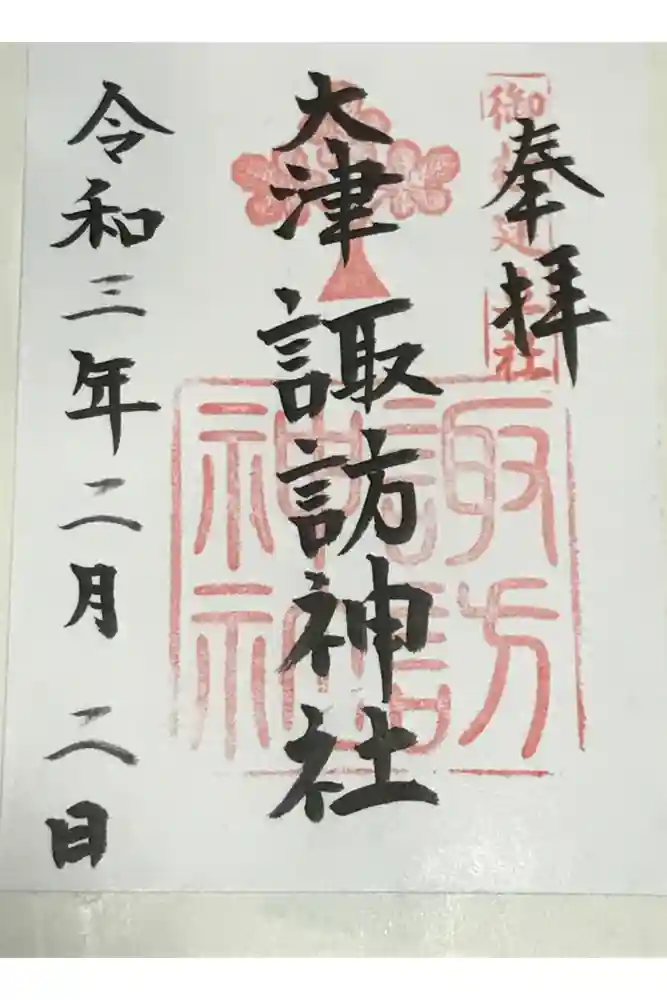 奉拝
大津 諏訪神社
諏訪神社
令和三年二月二日